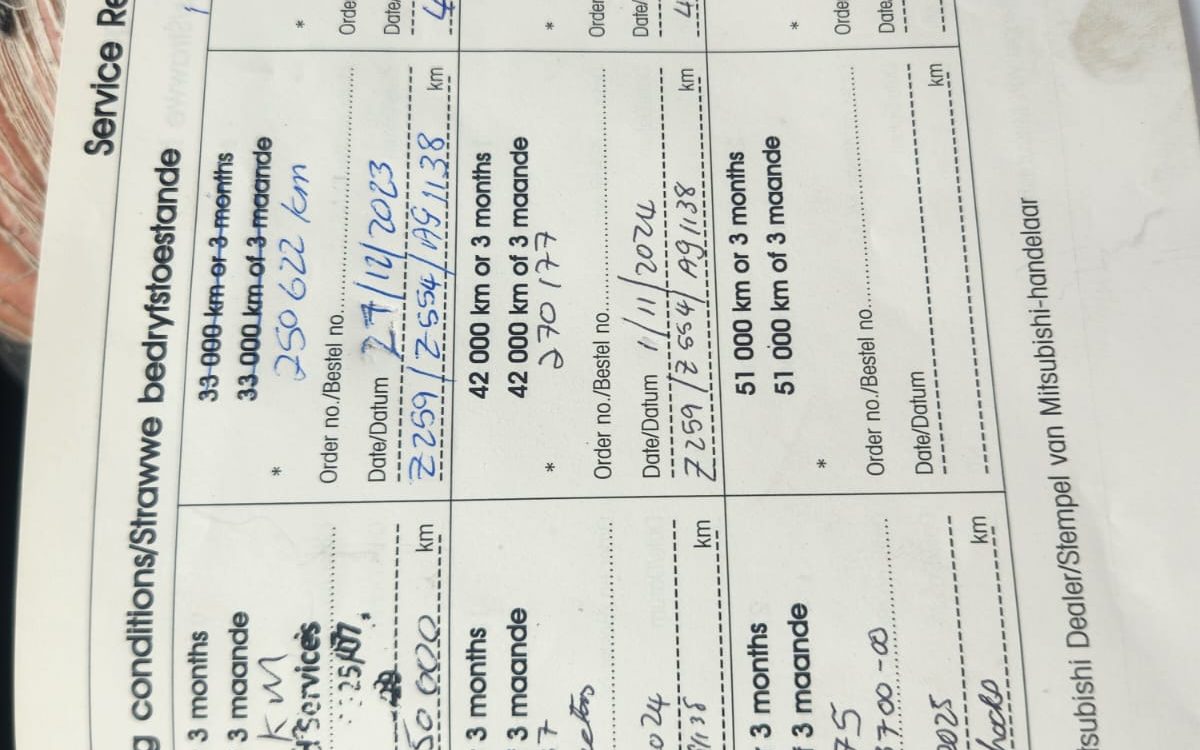 Service Re
g conditions/Strawwe bedryfstoestande
3 months
3 maande
km
services
50 000 km
33 000 km or 3 months
33 000 km of 3 maande
* 250 622 km
Order no./Bestel no.
Date/Datum 27/12/2023
Z259/Z554/AG1138 km
*
Orde
Date/
4
3 months
3 maande
7
024
1138 km
42 000 km or 3 months
42 000 km of 3 maande
* 270177
Order no./Bestel no.
Date/Datum 1/11/2024
Z259/Z554/AG1138 km
*
Order
Date/
4
3 months
3 maande
75
3700-00
2025
km
51 000 km or 3 months
51 000 km of 3 maande
*
Order no./Bestel no.
Date/Datum
km
*
Orde
Date
tsubishi Dealer/Stempel van Mitsubishi-handelaar